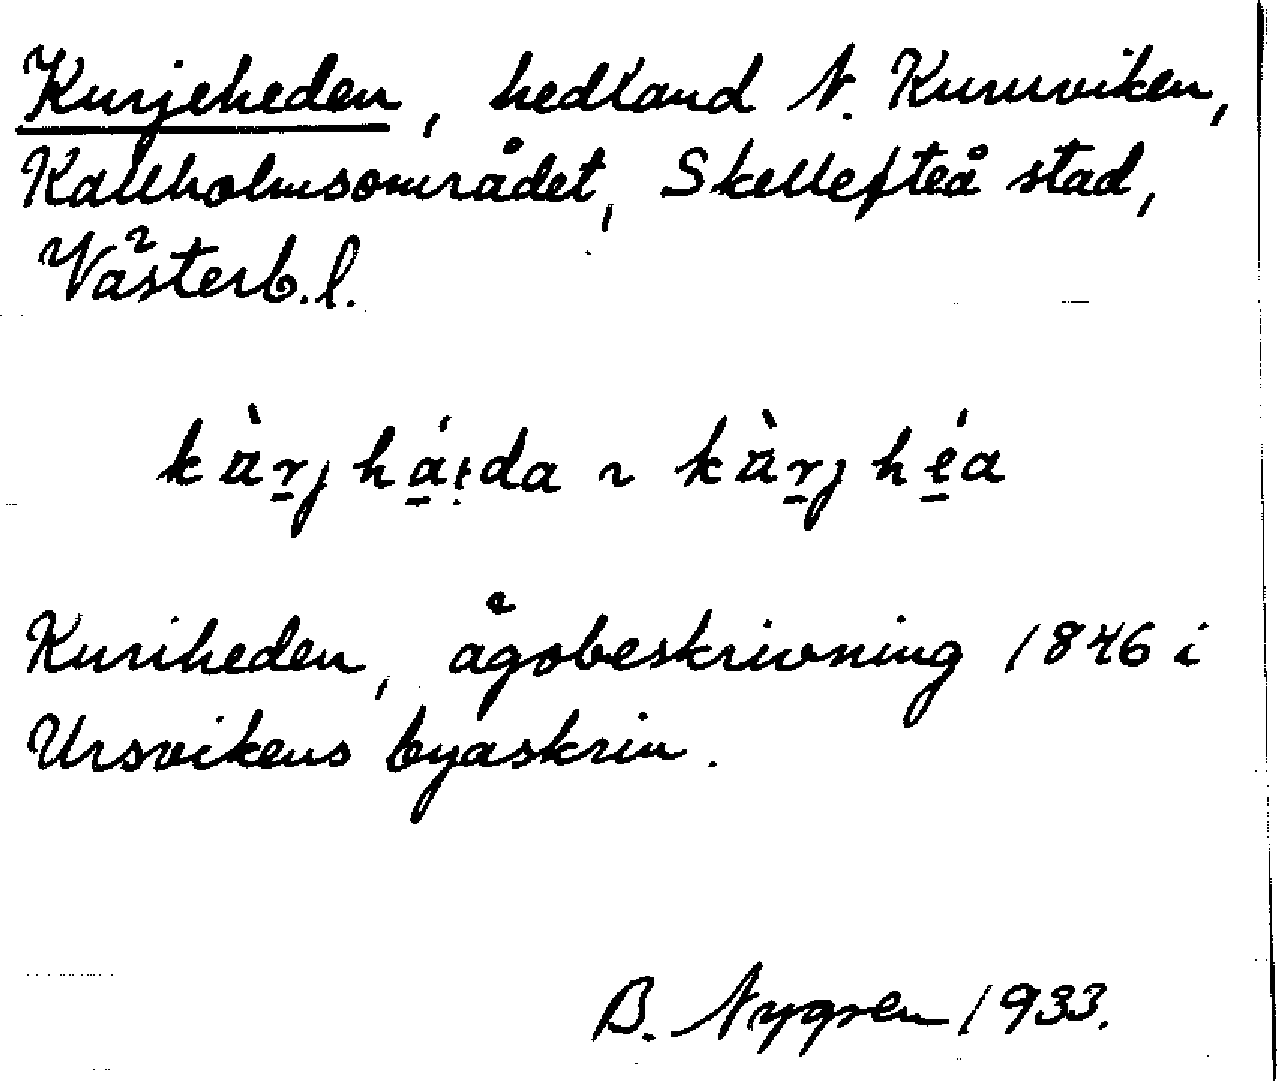 Kurjeheden, hedland N. Kururviken,
Kallholmsområdet, Skellefteå stad,
Västerb. l.
kαrj háida ~ kαrj héa
Kuriheden, ägobeskrivning 1846 i
Ursvikens byaskrin.
B. Nygren 1933.